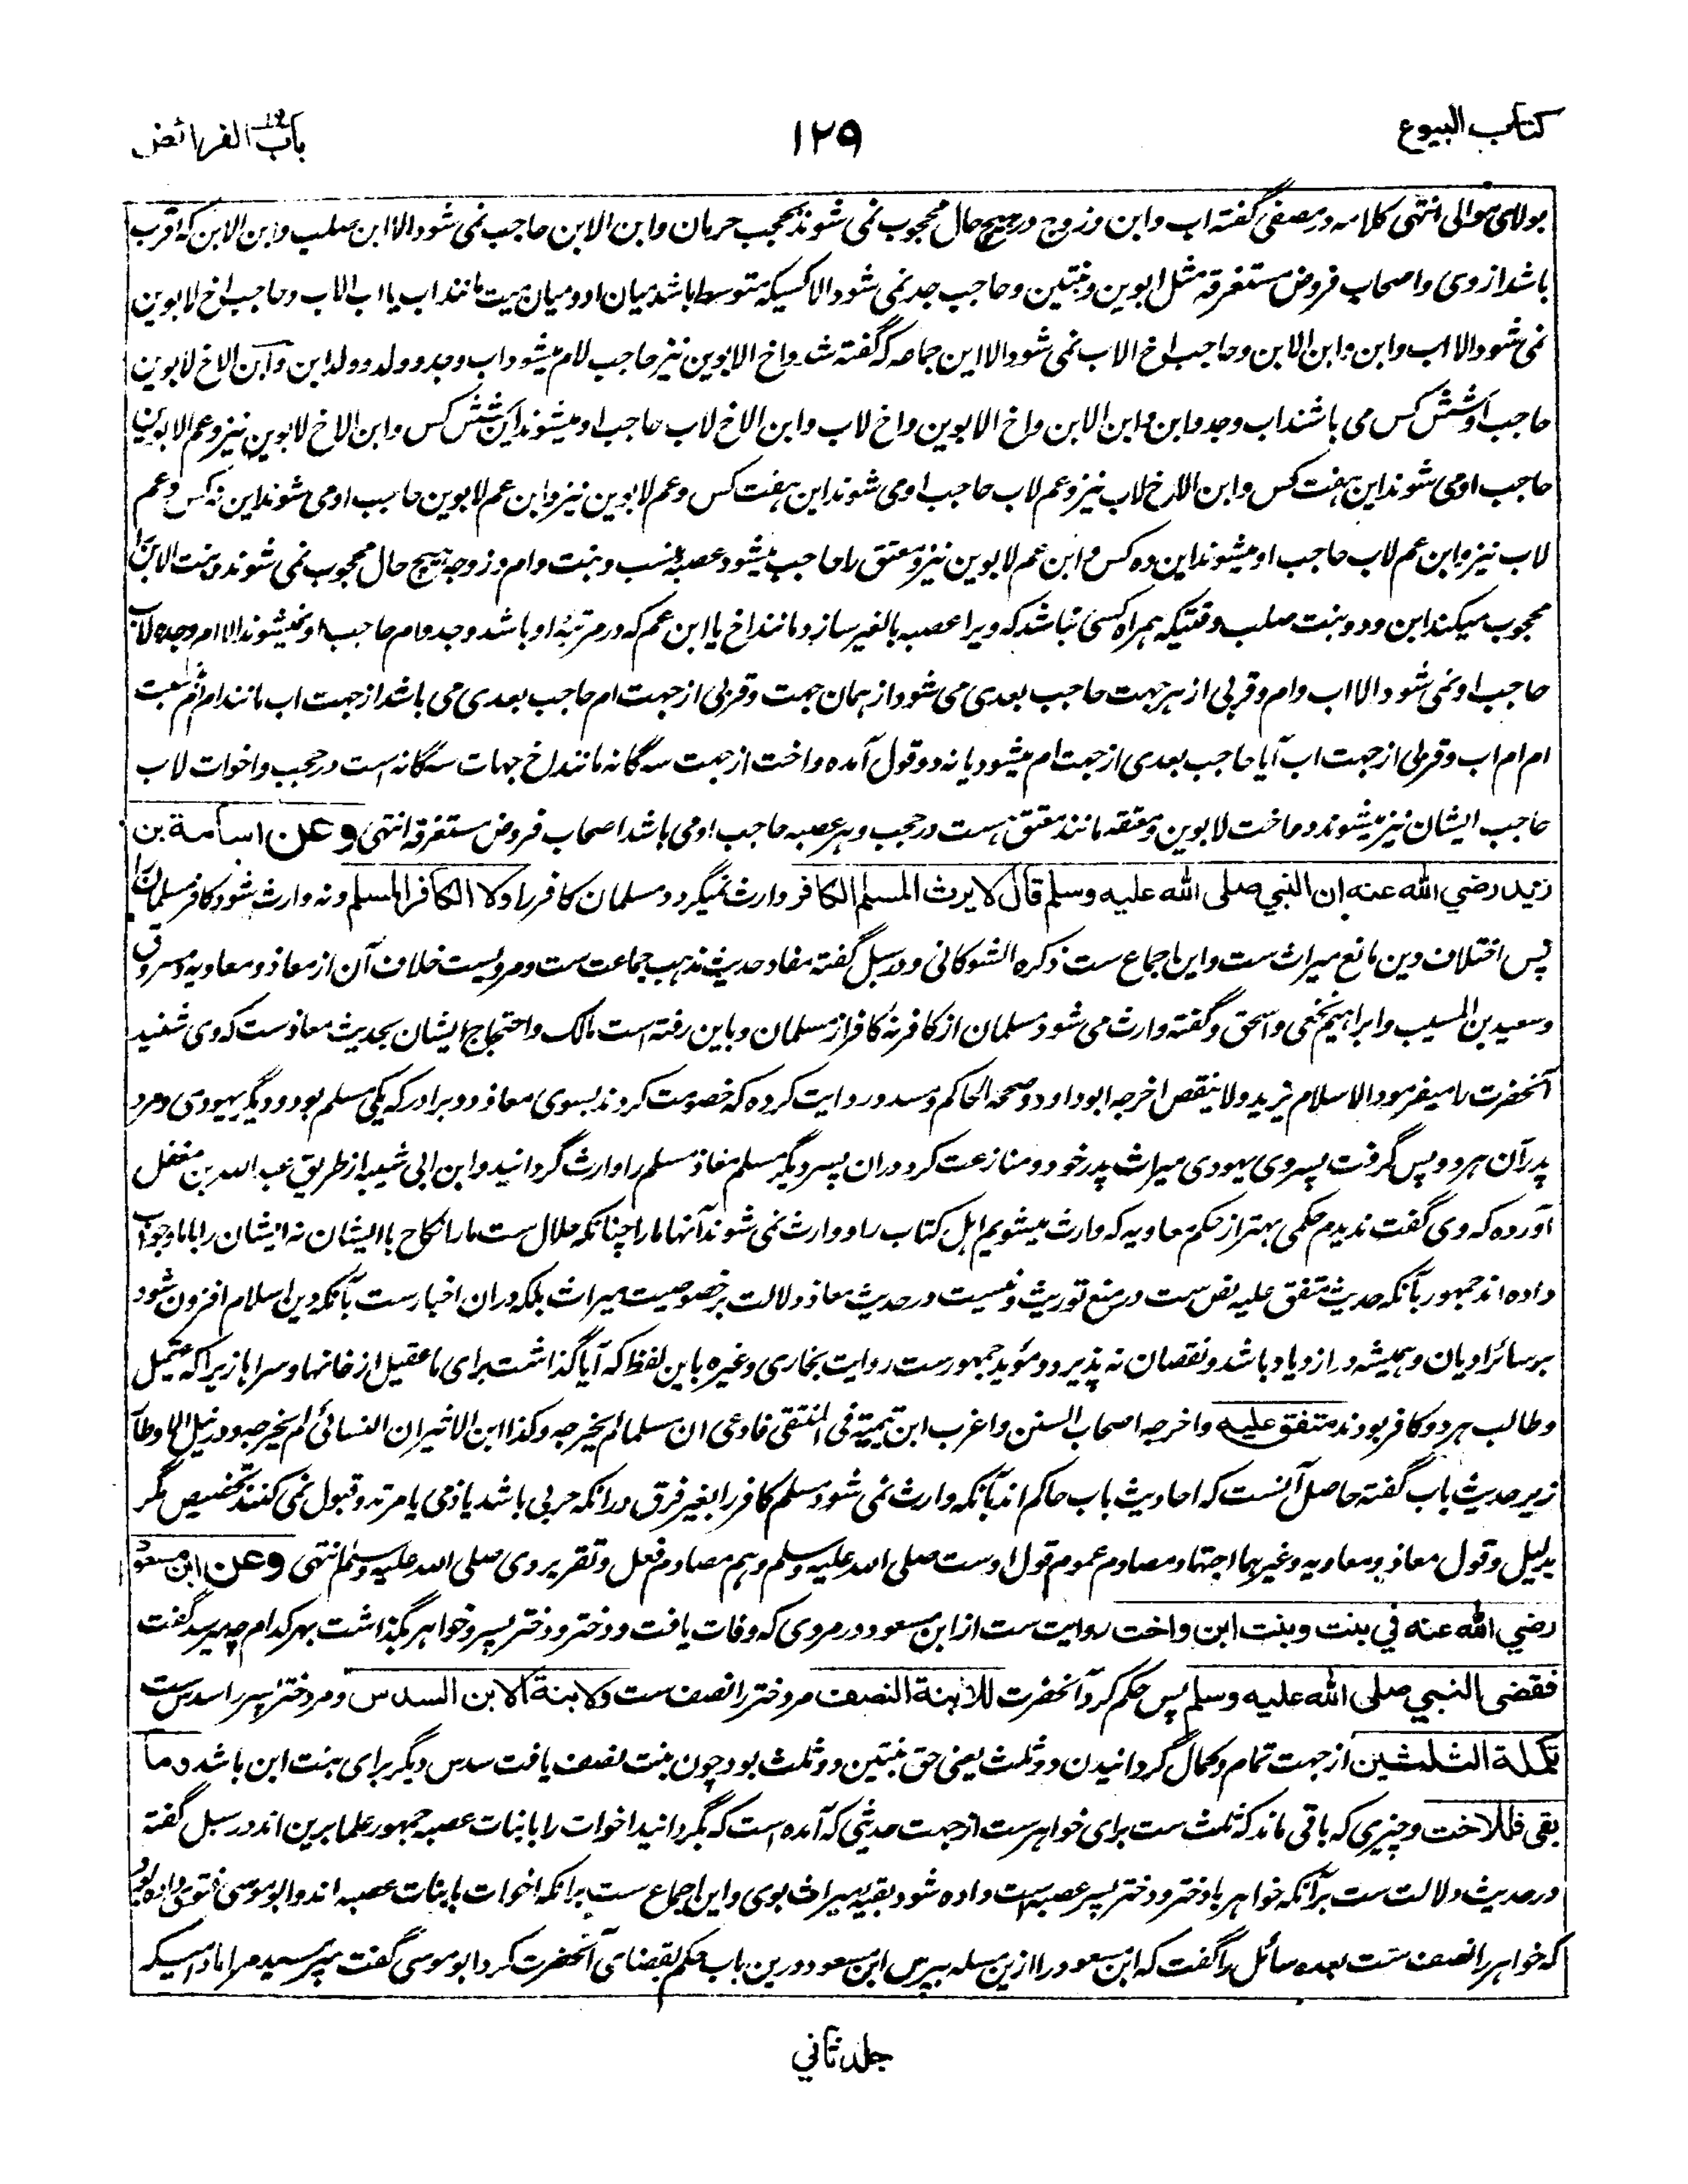 کتاب البیوع
۱۲۹
باب الفرائض
بولای موالی انتهی کلامه در مصفی گفته اب و ابن و زوج در هیچ حال محجوب نمی شوند بحجب حرمان و ابن الابن حاجب نمی شود الا ابن صلب و ابن الابن که اقرب
باشد از وی و اصحاب فروض مستغرقه مثل ابوین و بنتین و حاجب جد نمی شود الا کسیکه متوسط باشد میان او و میان میت مانند اب یا اب الاب و حاجب اخ لابوین
نمی شود الا اب و ابن و ابن الابن و حاجب اخ الاب نمی شود الا این جماعه که گفته شد و اخ الابوین نیز حاجب لام میشود اب و جد و ولد و ولد ابن و ابن الاخ لابوین
حاجب او شش کس می باشند اب و جد و ابن و ابن الابن و اخ الابوین و اخ لاب و ابن الاخ لاب حاجب او میشوند این شش کس و ابن الاخ لابوین نیز و عم الابوین
حاجب او می شوند این هفت کس و ابن الاخ لاب نیز و عم لاب حاجب او می شوند این هفت کس و عم لابوین نیز و ابن عم لابوین حاجب او می شوند این نه کس و عم
لاب نیز و ابن عم لاب حاجب او میشوند این ده کس و ابن عم لابوین نیز و معتق را حاجب میشود عصبه نسب و بنت و ام و زوجه هیچ حال محجوب نمی شوند و بنت الابن را
محجوب میکند ابن و دو بنت صلب وقتیکه همراه کسی نباشد که ویرا عصبه بالغیر سازد مانند اخ یا ابن عم که در مرتبۀ او باشد و جده ام حاجب او نمیشوند الا ام و جده لاب
حاجب او نمی شود الا اب و ام و قربی از هر جهت حاجب بعدی می شود از همان جهت و قربی از جهت ام حاجب بعدی می باشد از جهت اب مانند ام ام نسبت
ام ام اب و قربی از جهت اب آیا حاجب بعدی از جهت ام میشود یا نه دو قول آمده و اخت از جهت سه گانه مانند اخ جهات سه گانه است در حجب و اخوات لاب
حاجب ایشان نیز میشوند دو اخت لابوین و معتقه مانند معتق هست در حجب و هر عصبه حاجب او می باشد اصحاب فروض مستغرقه انتهی وعن اسامة بن
زید رضي الله عنه ان النبي صلی الله علیه وسلم قال لا یرث المسلم الکافر وارث نمیگردد مسلمان کافر را ولا الکافر المسلم و نه وارث شود کافر مسلمان را
پس اختلاف دین مانع میراث ست و این اجماع ست ذکره الشوکانی و در سبل گفته مفاد حدیث مذهب جماعت ست و مرویست خلاف آن از معاذ و معاویه و مسروق
و سعید بن المسیب و ابراهیم نخعی و اسحق و گفته وارث می شود مسلمان از کافر نه کافر از مسلمان و باین رفته است مالک و احتجاج ایشان بحدیث معاذ ست که وی شنید
آنحضرت را میفرمود الاسلام یزید ولا ینقص اخرجه ابو داود و صححه الحاکم و مسدد روایت کرده که خصومت کردند بسوی معاذ دو برادر که یکی مسلم بود و دیگر یهودی و مرد
پدر آن هر دو پس گرفت پسر وی یهودی میراث پدر خود و منازعت کرد در ان پسر دیگر مسلم معاذ مسلم را وارث گردانید و ابن ابی شیبه از طریق عبد الله بن مغفل
آورده که وی گفت ندیدم حکمی بهتر از حکم معاویه که وارث میشویم اهل کتاب را و وارث نمی شوند آنها ما را چنانکه حلال ست ما را نکاح با ایشان نه ایشان را با ما و جواب
داده اند جمهور بآنکه حدیث متفق علیه نص ست در منع توریث و نیست در حدیث معاذ دلالت بر خصوصیت میراث بلکه در ان اخبار ست بآنکه دین اسلام افزون شود
بر سائر ادیان و همیشه در ازدیاد باشد و نقصان نه پذیرد و مؤید جمهور ست روایت بخاری و غیره باین لفظ که آیا گذاشت برای ما عقیل از خانها و سراها زیرا که عقیل
و طالب هر دو کافر بودند متفق علیه و اخرجه اصحاب السنن و اغرب ابن تیمیة فی المنتقی فادعی ان مسلما لم یخرجه و کذا ابن الاثیر ان النسائی لم یخرجه و در نیل الاوطار
زیر حدیث باب گفته حاصل آنست که احادیث باب حاکم اند بآنکه وارث نمی شود مسلم کافر را بغیر فرق در انکه حربی باشد یا ذمی یا مرتد و قبول نمی کنند تخصیص مگر
بدلیل و قول معاذ و معاویه و غیرهما اجتهاد مصادم عموم قول اوست صلی الله علیه وسلم و هم مصادم فعل و تقریر وی صلی الله علیه وسلم انتهی وعن ابن مسعود
رضي الله عنه في بنت وبنت ابن واخت روایت ست از ابن مسعود در مردی که وفات یافت و دختر و دختر پسر و خواهر بگذاشت بهر کدام چه میرسد گفت
فقضی النبي صلی الله علیه وسلم پس حکم کرد آنحضرت للابنة النصف مر دختر را نصف ست ولابنة الابن السدس و مر دختر پسر را سدس ست
تکملة الثلثین از جهت تمام و کمال گردانیدن دو ثلث یعنی حق بنتین دو ثلث بود چون بنت نصف یافت سدس دیگر برای بنت ابن باشد وما
بقی فللاخت و چیزی که باقی ماند که ثلث ست برای خواهر ست از جهت حدیثی که آمده است که بگردانید اخوات را با بنات عصبه جمهور علما برین اند در سبل گفته
در حدیث دلالت ست بر آنکه خواهر با دختر و دختر پسر عصبه است داده شود بقیه میراث بوی و این اجماع ست بر انکه اخوات با بنات عصبه اند و ابو موسی فتوی داده بود
که خواهر را نصف ست بعده سائل را گفت که ابن مسعود را ازین مسله بپرس ابن مسعود درین باب حکم بقضای آنحضرت کرد ابو موسی گفت مپرسید مرا مادامیکه
جلد ثاني